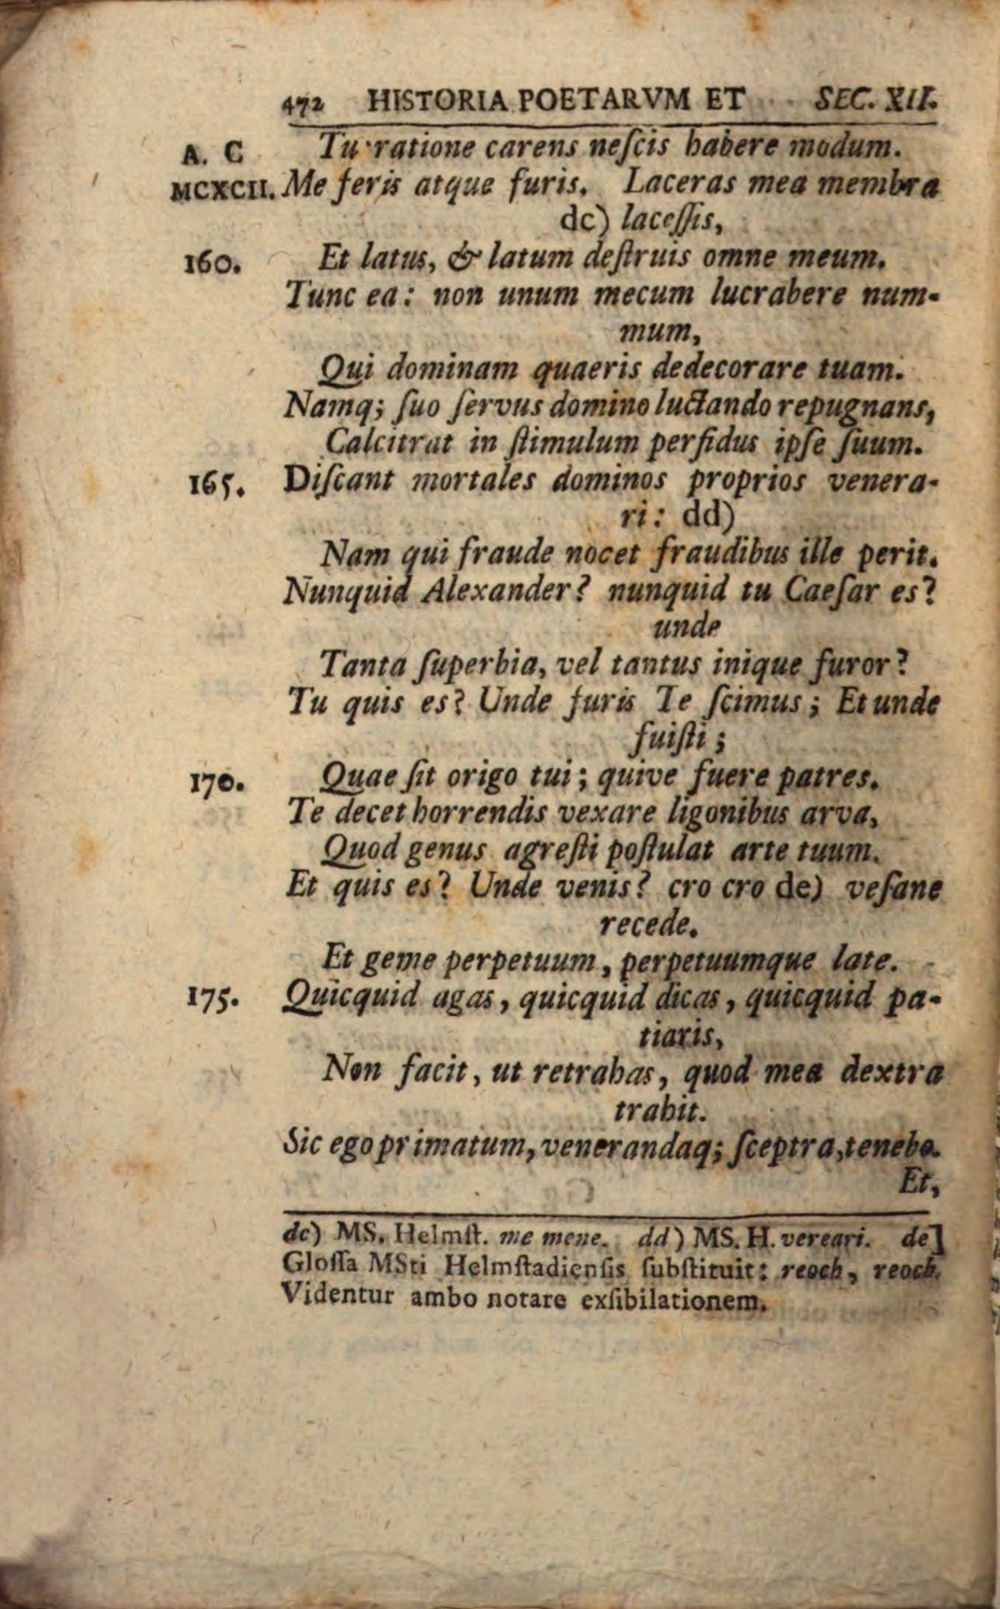 472 HISTORIA POETARVM ET SEC. XII.
A. C Tu ratione carens neſcis habere modum.
MCXCII. Me feris atque furis. Laceras mea membra
dc) laceſſis,
160. Et latus, & latum deſtruis omne meum.
Tunc ea: non unum mecum lucrabere num-
mum,
Qui dominam quaeris dedecorare tuam.
Namq; ſuo ſervus domino luctando repugnans,
Calcitrat in ſtimulum perfidus ipſe ſuum.
165. Diſcant mortales dominos proprios venera-
ri: dd)
Nam qui fraude nocet fraudibus ille perit.
Nunquid Alexander? nunquid tu Caeſar es?
unde
Tanta ſuperbia, vel tantus inique furor?
Tu quis es? Unde furis Te ſcimus; Et unde
fuiſti;
170. Quae ſit origo tui; quive fuere patres.
Te decet horrendis vexare ligonibus arva,
Quod genus agreſti poſtulat arte tuum.
Et quis es? Unde venis? cro cro de) veſane
recede.
Et geme perpetuum, perpetuumque late.
175. Quicquid agas, quicquid dicas, quicquid pa-
tiaris,
Non facit, ut retrahas, quod mea dextra
trahit.
Sic ego primatum, venerandaq; ſceptra, tenebo.
Et,
dc) MS. Helmſt. me mene. dd) MS. H. vereari. de]
Gloſſa MSti Helmſtadienſis ſubſtituit: reoch, reoch.
Videntur ambo notare exſibilationem.